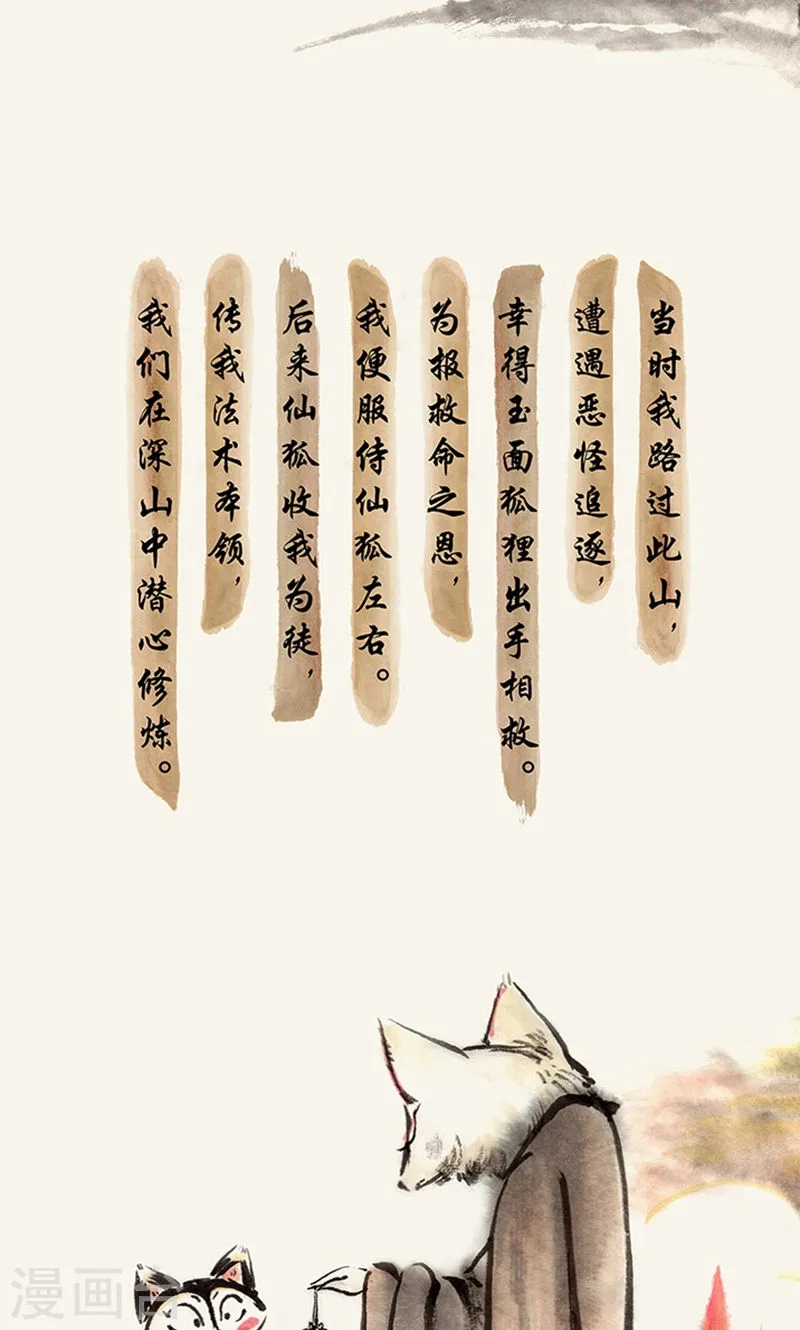 当时我路过此山，
遭遇恶怪追逐，
幸得玉面狐狸出手相救。
为报救命之恩，
我便服侍仙狐左右。
后来仙狐收我为徒，
传我法术本领，
我们在深山中潜心修炼。
漫画台